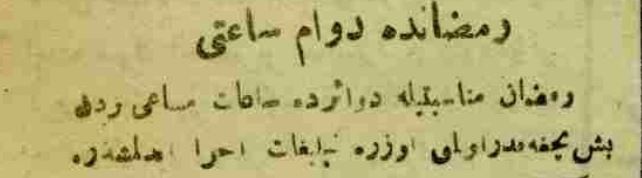 رمضانده دوام ساعتى
رمضان مناسبتيله دوائرده ساعات مساعى بردن
بش بچغه قدر اولمق اوزره تبليغات اجرا ايدلمشدر